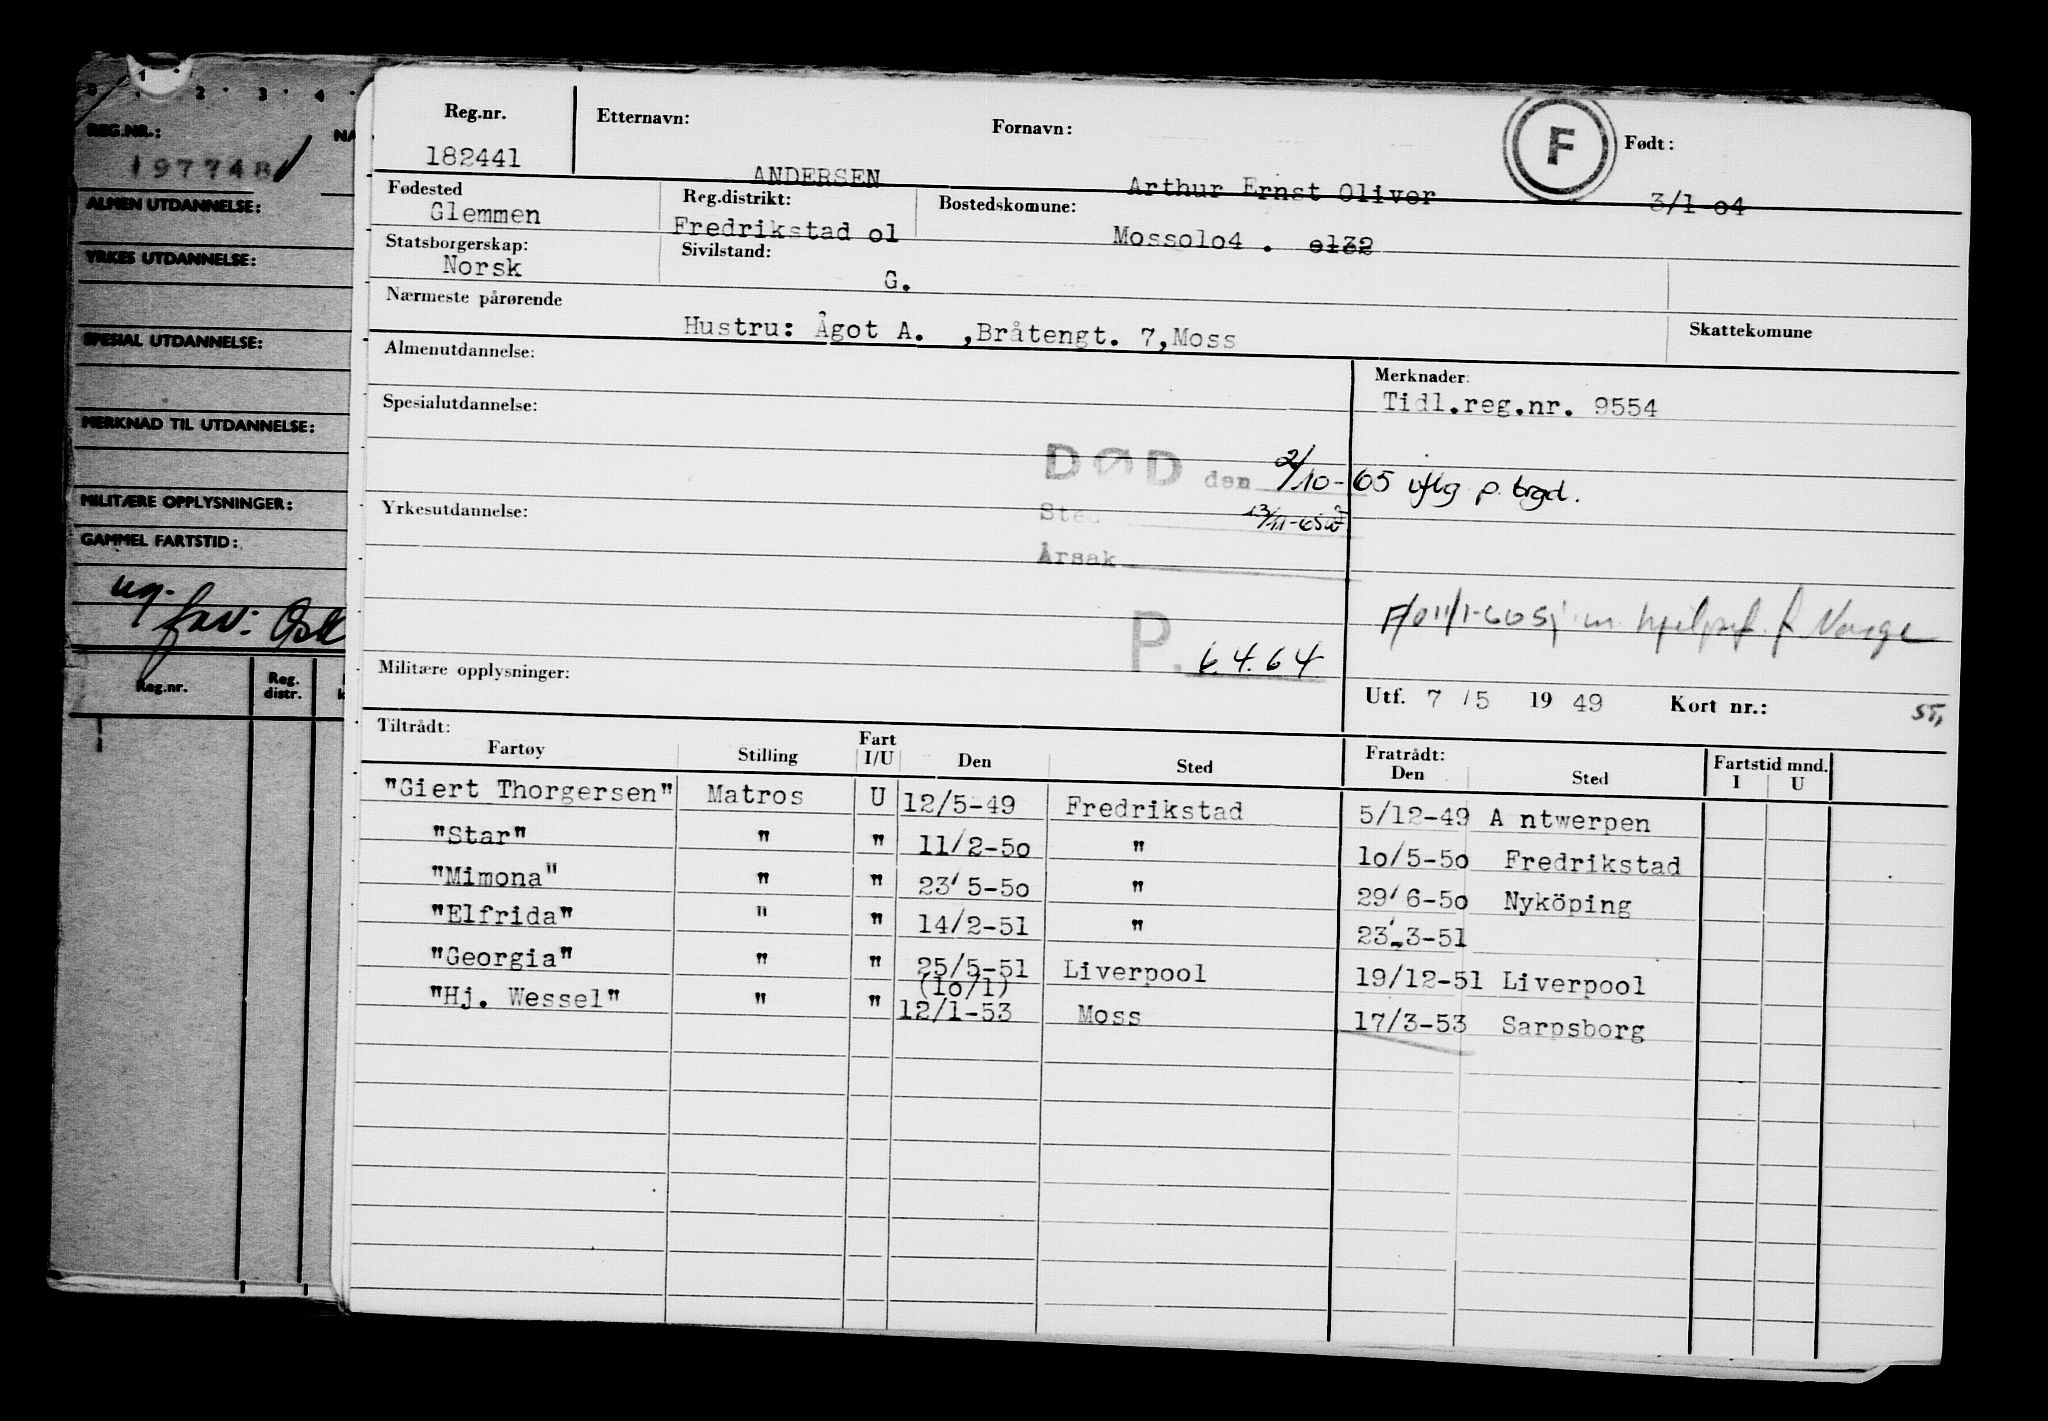 1
2 3 4
REG.NR.: NA
197748
ALMEN UTDANNELSE:
YRKES UTDANNELSE:
SPESIAL UTDANNELSE:
MERKNAD TIL UTDANNELSE:
MILITÆRE OPPLYSNINGER:
GAMMEL FARTSTID:
ug.
fav: Osl
Reg.nr. Reg. distr. k
Reg.nr. Etternavn: Fornavn: F Født:
182441 ANDERSEN Arthur Ernst Oliver 3/1 o4
Fødested Reg.distrikt: Bostedskomune:
Glemmen Fredrikstad o1 Mossolo4 . o132
Statsborgerskap: Sivilstand:
Norsk G.
Nærmeste pårørende
Hustru: Ågot A. ,Bråtengt. 7,Moss Skattekomune
Almenutdannelse: Merknader:
Tidl.reg.nr. 9554
Spesialutdannelse:
DØD den 2/10-65 iflg p. brgd.
Yrkesutdannelse: Sted 13/11-65
Årsak
Norge
P. 6.4.64
Militære opplysninger: Utf. 7 /5 19 49 Kort nr.:
Tiltrådt: Fart Fratrådt: Fartstid mnd.
Fartøy Stilling I/U Den Sted Den Sted I U
"Giert Thorgersen" Matros U 12/5-49 Fredrikstad 5/12-49 A ntwerpen
"Star" " " 11/2-5o " 1o/5-5o Fredrikstad
"Mimona" " " 23' 5-5o " 29' 6-5o Nyköping
"Elfrida" " " 14/2-51 " 23'-3-51
"Georgia" " " 25/5-51 Liverpool 19/12-51 Liverpool
(1o/1)
"Hj. Wessel" " " 12/1-53 Moss 17/3-53 Sarpsborg